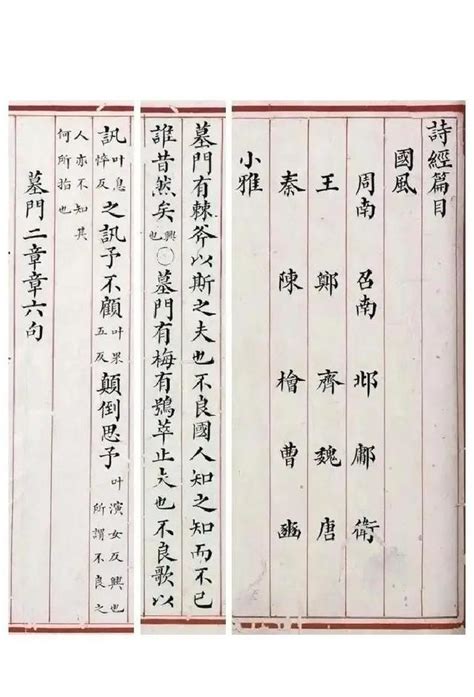 詩經篇目
國風
周南 召南 邶 鄘 衛
王 鄭 齊 魏 唐
秦 陳 檜 曹 豳
小雅
墓門有棘斧以斯之夫也不良國人知之知而不已
誰昔然矣興也○墓門有梅有鴞萃止夫也不良歌以
訊叶息悴反之訊予不顧叶果五反顛倒思予叶演女反興也所謂不良之
人亦不知其何所指也
墓門二章章六句